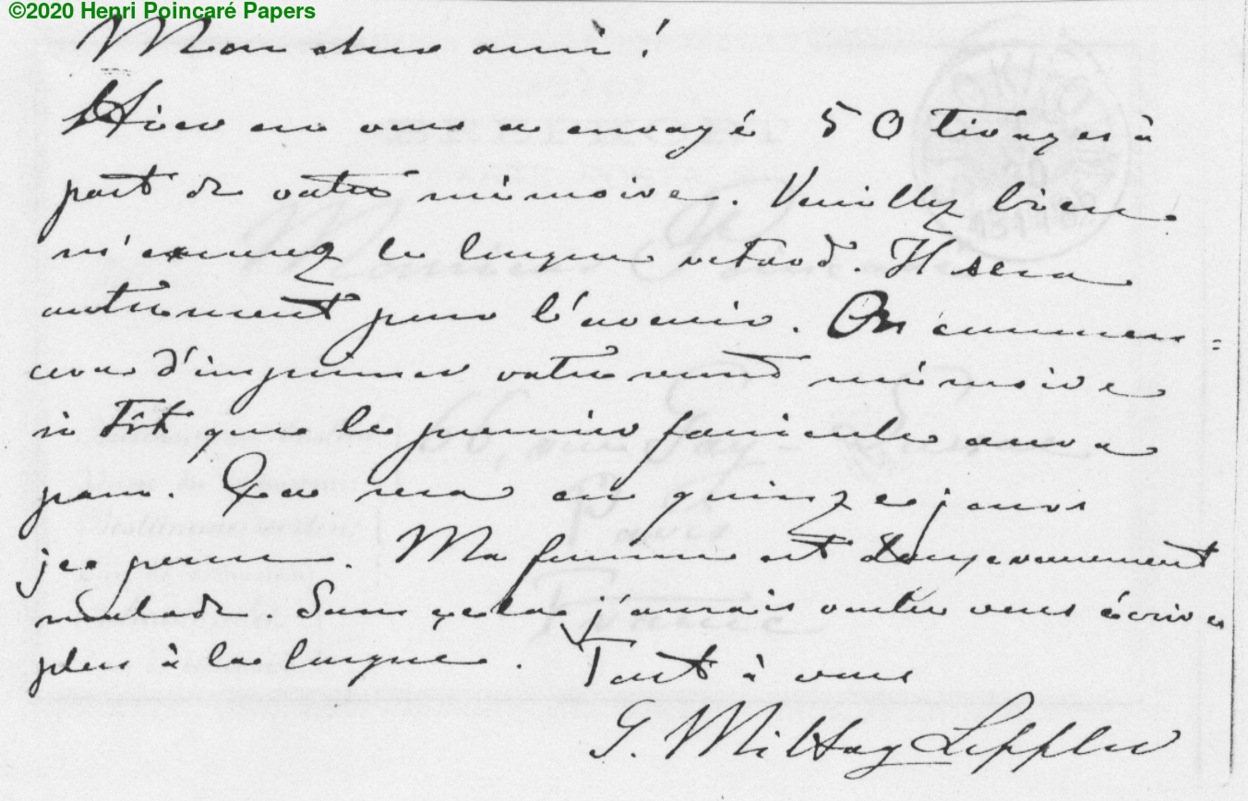 ©2020 Henri Poincaré Papers
Mon cher ami!
Hier on vous a envoyé 50 tirages à
part de votre mémoire. Veuillez bien
m'excusez le longue retard. Il sera
autrement pour l'avenir. On commen=
cera d'imprimer votre mémoire
si tôt que le premier fascicule aura
paru. Ça sera en quinze jours
je pense. Ma femme est dangereusement
malade. Sans cela j'aurais voulu vous écrire
plus à la longue. Tout à vous
G. Mittag Leffler
66, rue Gay-Lussac
Paris
France